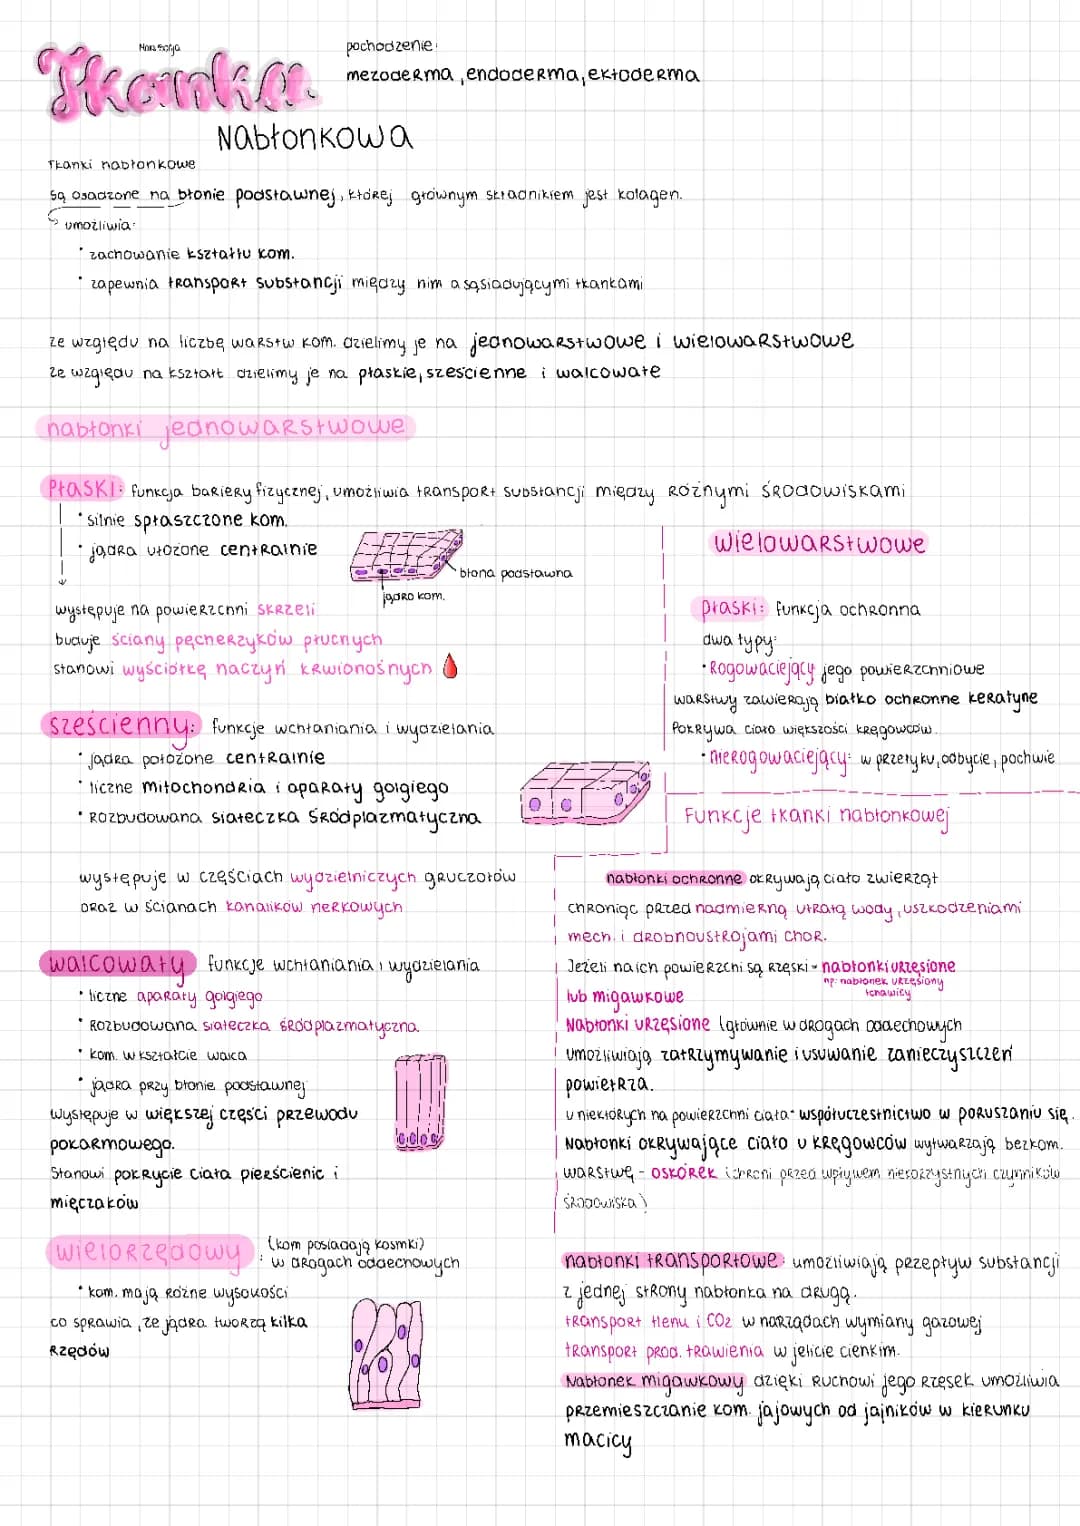 Tkanka
pochodzenie:
mezoderma, endoderma, ektoderma
Nabłonkowa
Tkanki nabłonkowe
są osadzone na błonie podstawnej, której głównym składnikiem jest kolagen.
umożliwia:
• zachowanie kształtu kom.
• zapewnia transport substancji między nim a sąsiadującymi tkankami
ze względu na liczbę warstw kom. dzielimy je na jednowarstwowe i wielowarstwowe
ze względu na kształt dzielimy je na płaskie, sześcienne i walcowate
nabłonki jednowarstwowe
Płaski: funkcja bariery fizycznej, umożliwia transport substancji między różnymi środowiskami
• silnie spłaszczone kom.
• jądra ułożone centralnie
błona podstawna
jądro kom.
występuje na powierzchni skrzeli
buduje ściany pęcherzyków płucnych
stanowi wyściółkę naczyń krwionośnych
sześcienny: funkcje wchłaniania i wydzielania
• jądra położone centralnie
• liczne mitochondria i aparaty golgiego
• Rozbudowana siateczka śródplazmatyczna
występuje w częściach wydzielniczych gruczołów
oraz w ścianach kanalików nerkowych
walcowaty funkcje wchłaniania i wydzielania
• liczne aparaty golgiego
• Rozbudowana siateczka śródplazmatyczna
• kom. w kształcie walca
• jądra przy błonie podstawnej
Występuje w większej części przewodu
pokarmowego.
Stanowi pokrycie ciała pierścienic i
mięczaków
wielorzędowy : (kom posiadają kosmki)
w drogach oddechowych
• kom. mają różne wysokości
co sprawia, że jądra tworzą kilka
rzędów
wielowarstwowe
płaski: funkcja ochronna
dwa typy:
• Rogowaciejący jego powierzchniowe
warstwy zawierają białko ochronne keratynę
Pokrywa ciało większości kręgowców.
• nierogowaciejący: w przełyku, odbycie, pochwie
Funkcje tkanki nabłonkowej
nabłonki ochronne okrywają ciało zwierząt
chroniąc przed nadmierną utratą wody, uszkodzeniami
mech. i drobnoustrojami chor.
Jeżeli na ich powierzchni są rzęski - nabłonki urzęsione
np. nabłonek urzęsiony
tchawicy
lub migawkowe
Nabłonki urzęsione (głównie w drogach oddechowych
umożliwiają zatrzymywanie i usuwanie zanieczyszczeń
powietrza.
u niektórych na powierzchni ciała- współuczestnictwo w poruszaniu się.
Nabłonki okrywające ciało u kręgowców wytwarzają bezkom.
warstwę - oskórek (chroni przed wpływem niekorzystnych czynników
środowiska)
nabłonki transportowe: umożliwiają przepływ substancji
z jednej strony nabłonka na drugą.
transport tlenu i CO2 w narządach wymiany gazowej
transport prod. trawienia w jelicie cienkim.
Nabłonek migawkowy dzięki ruchowi jego rzęsek umożliwia
przemieszczanie kom. jajowych od jajników w kierunku
macicy